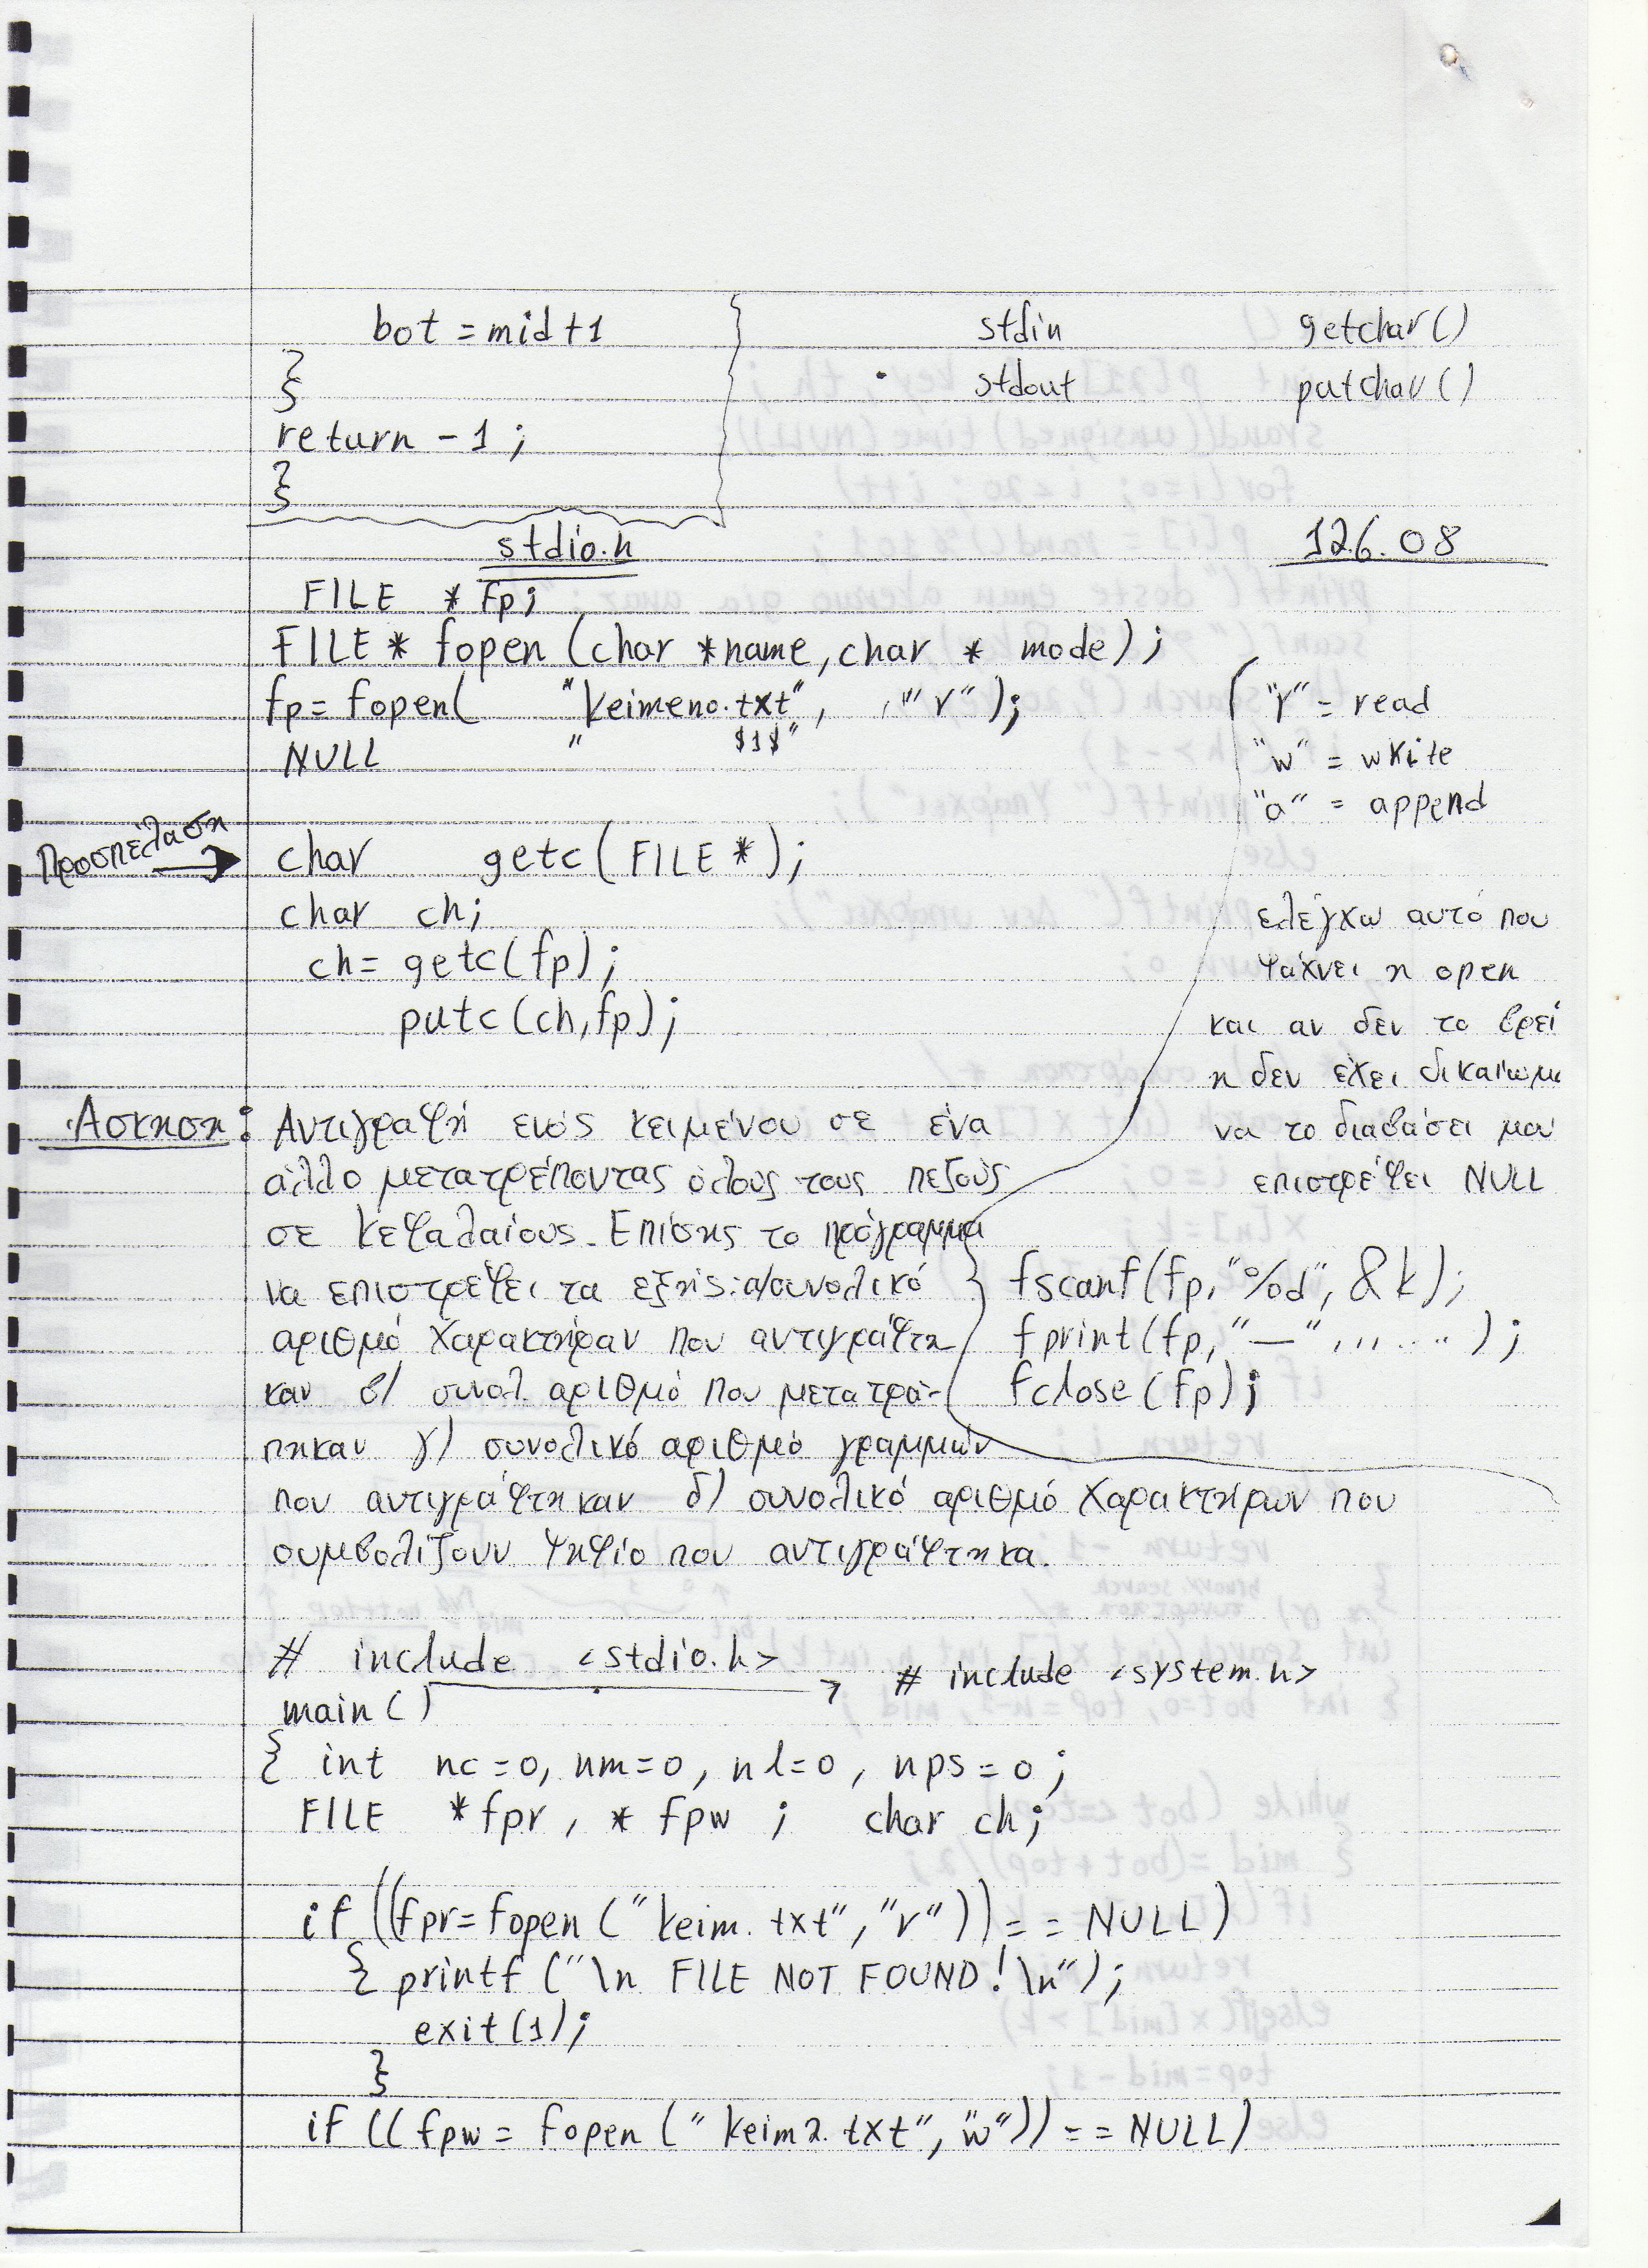 bot = mid+1
}
return -1 ;
}
stdin getchar()
stdout putchar()
stdio.h
12.6.08
FILE * fp;
FILE* fopen (char *name, char * mode);
fp= fopen( "keimeno.txt", "r");
NULL " $1$"
"r" = read
"w" = write
"a" = append
Προσπέλαση → char getc( FILE *);
char ch;
ch= getc(fp);
putc(ch,fp);
ελέγχω αυτό που
ψάχνει η open
και αν δεν το βρεί
η δεν έχει δικαίωμ
να το διαβάσει μου
επιστρέψει NULL
Άσκηση: Αντιγραφή ενός κειμένου σε ένα
άλλο μετατρέποντας όλους τους πεζούς
σε κεφαλαίους. Επίσης το πρόγραμμα
να επιστρέψει τα εξής: α/συνολικό
αριθμό χαρακτήραν που αντιγράφτη
καν β/ συνολ. αριθμό που μετατρά-
πηκαν γ) συνολικό αριθμό γραμμών
που αντιγράφτηκαν δ) συνολικό αριθμό χαρακτήρων που
συμβολίζουν ψηφίο που αντιγράφτηκα.
fscanf(fp,"%d", &k);
fprint(fp,"—",,,....);
fclose(fp);
# include <stdio.h> → # include <system.h>
main()
{ int nc=0, nm=0, nl=0, nps=0;
FILE *fpr, * fpw ; char ch;
if ((fpr=fopen ("keim.txt","r"))== NULL)
{ printf ("\n FILE NOT FOUND! \n");
exit(1);
}
if (( fpw = fopen ("keim2.txt", "w"))== NULL)